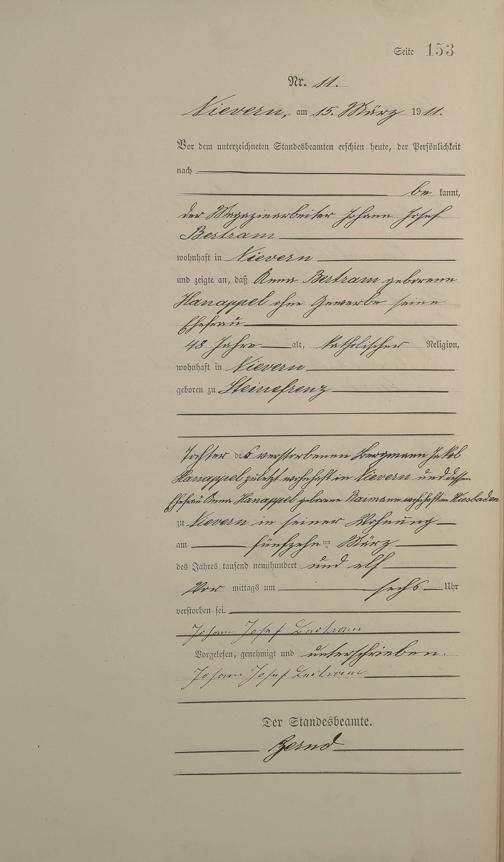 Seite 153
Nr. 11.
Nievern, am 15. März 1911.
Vor dem unterzeichneten Standesbeamten erschien heute, der Persönlichkeit
nach
be kannt,
der Magazinarbeiter Johann Josef
Bertram
wohnhaft in Nievern
und zeigte an, daß Anna Bertram geborene
Hanappel ohne Gewerbe seine
Ehefrau
48 Jahre alt, katholischer Religion,
wohnhaft in Nievern
geboren zu Steinefrenz
Tochter des verstorbenen Bergmann Jakob
Hanappel zuletzt wohnhaft in Nievern und dessen
Ehefrau Anna Hanappel geborene wohnhaft in Wiesbaden
zu Nievern in seiner Wohnung
am fünfzehn ten März
des Jahres tausend neunhundert und elf
Vor mittags um sechs Uhr
verstorben sei.
Johann Josef Bertram
Vorgelesen, genehmigt und unterschrieben.
Johann Josef Bertram
Der Standesbeamte.